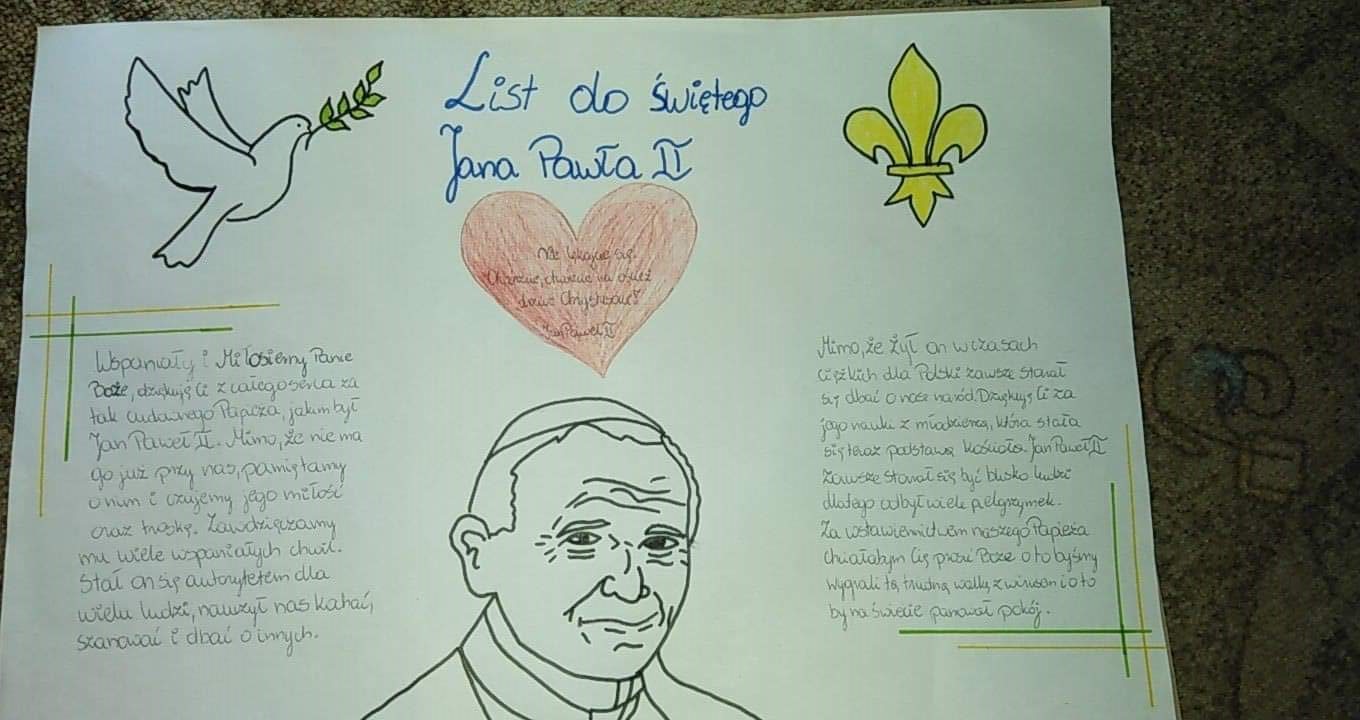 List do świętego
Jana Pawła II
Nie lękajcie się.
Otwórzcie, otwórzcie na oścież
drzwi Chrystusowi!
Jan Paweł II
Wspaniały i Miłosierny Panie
Boże, dziękuję Ci z całego serca za
tak cudownego Papieża, jakim był
Jan Paweł II. Mimo, że nie ma
go już przy nas, pamiętamy
o nim i czujemy jego miłość
oraz troskę. Zawdzięczamy
mu wiele wspaniałych chwil.
Stał on się autorytetem dla
wielu ludzi, nauczył nas kochać,
szanować i dbać o innych.
Mimo, że żył on w czasach
ciężkich dla Polski zawsze starał
się dbać o nasz naród. Dziękuję Ci za
jego nauki z młodzieżą, która stała
się teraz podstawą kościoła. Jan Paweł II
zawsze starał się być blisko ludzi
dlatego odbył wiele pielgrzymek.
Za wstawiennictwem naszego Papieża
chciałabym Cię prosić Boże o to byśmy
wygrali tą trudną walkę z wirusem i o to
by na świecie panował pokój.